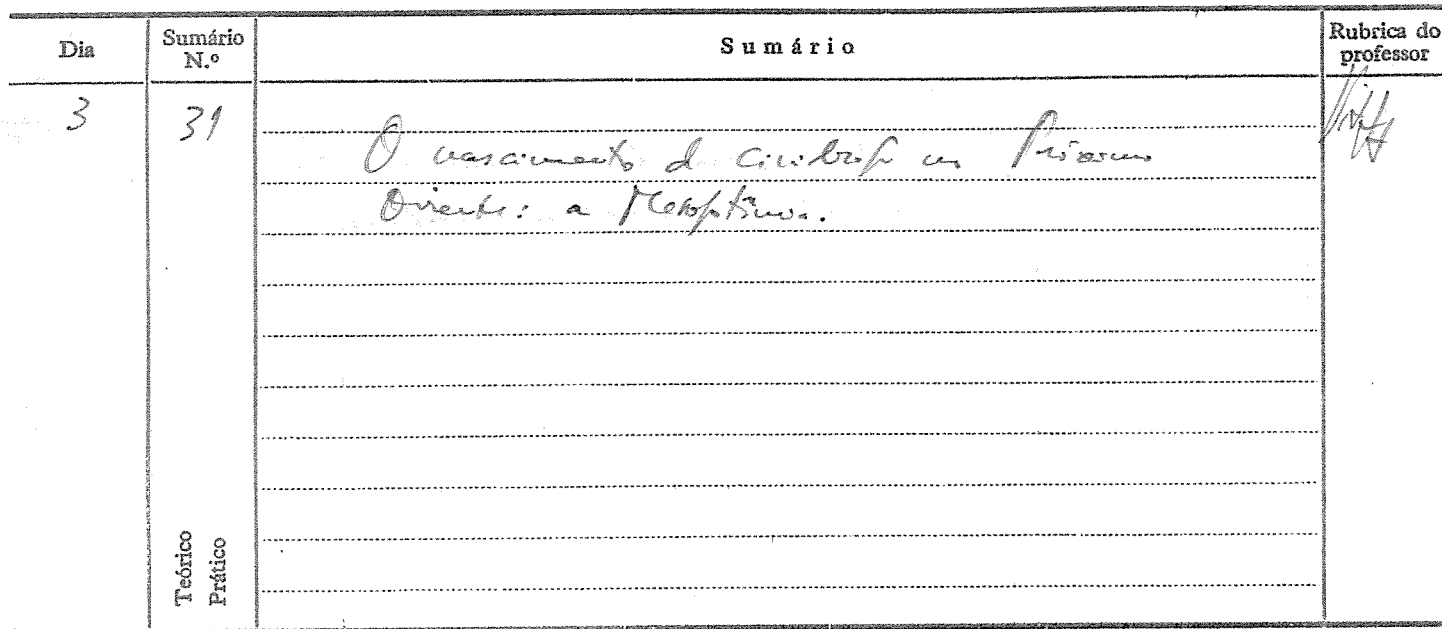 Dia
Sumário N.º
Sumário
Rubrica do professor
3
31
O nascimento da civilização no Próximo
Oriente: a Mesopotâmia.
Teórico
Prático